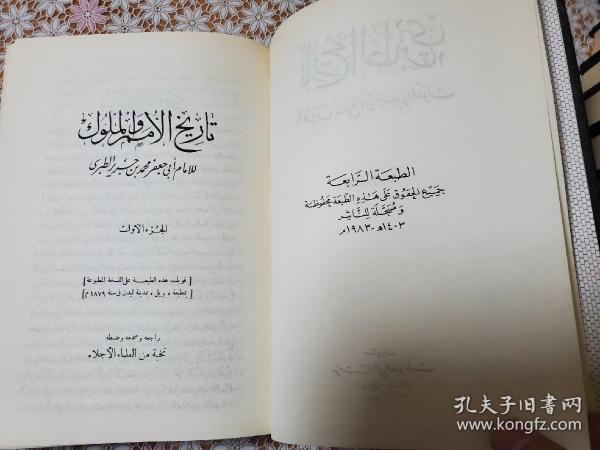 الطبعة الرابعة
جميع الحقوق على هذه الطبعة محفوظة
ومسجلة للناشر
١٤٠٣هـ - ١٩٨٣م
تاريخ الأمم والملوك
للإمام أبي جعفر محمد بن جرير الطبري
الجزء الأول
[ قوبلت هذه الطبعة على النسخة المطبوعة ]
[ بمطبعة « بريل » بمدينة ليدن في سنة ١٨٧٩ م ]
راجعه وصححه وضبطه
نخبة من العلماء الأجلاء
孔夫子旧书网
www.kongfz.com